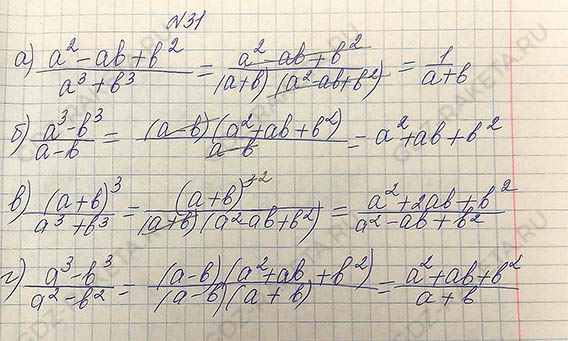 №31
а) (a² - ab + b²)/(a³ + b³) = (a² - ab + b²)/((a+b)(a² - ab + b²)) = 1/(a+b)
б) (a³ - b³)/(a - b) = ((a - b)(a² + ab + b²))/(a - b) = a² + ab + b²
в) (a+b)³/(a³ + b³) = (a+b)³ ²/((a+b)(a² - ab + b²)) = (a² + 2ab + b²)/(a² - ab + b²)
г) (a³ - b³)/(a² - b²) = ((a-b)(a² + ab + b²))/((a-b)(a + b)) = (a² + ab + b²)/(a + b)
GDZ-RAKETA.RU